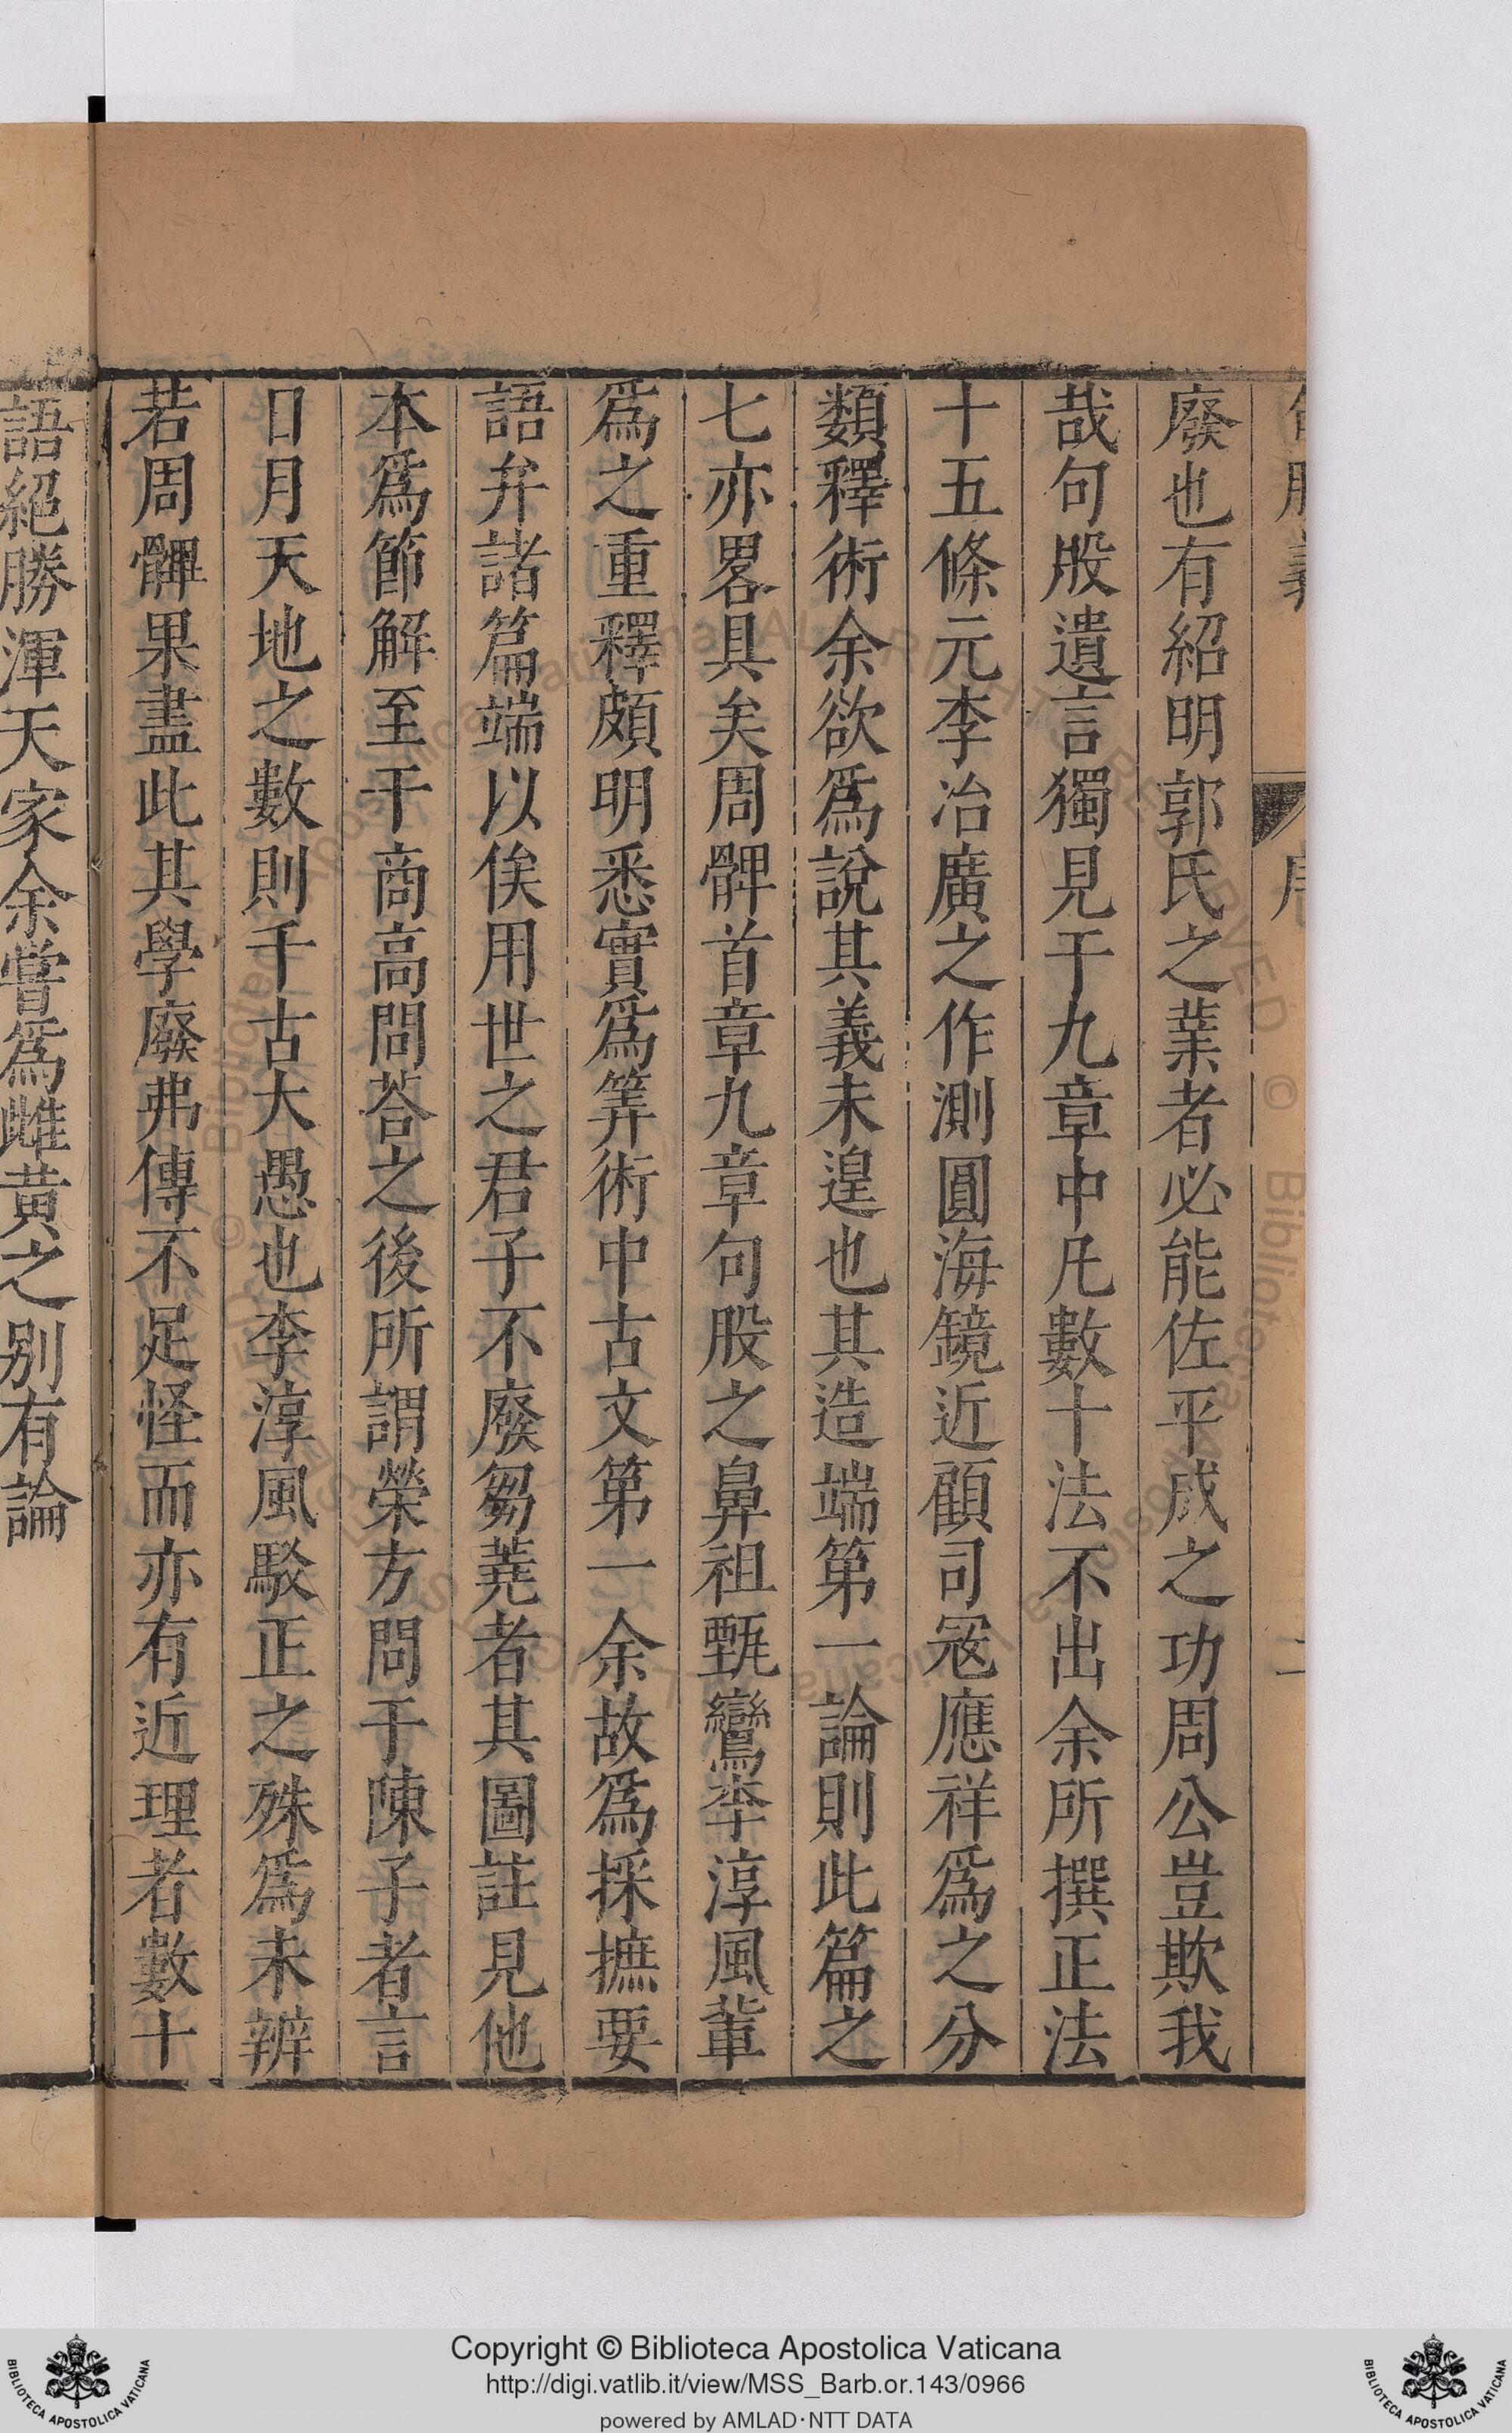 廢也有紹明郭氏之業者必能佐平成之功周公豈欺我
哉句股遺言獨見于九章中凡數十法不出余所撰正法
十五條元李冶廣之作測圓海鏡近顧司冦應祥爲之分
類釋術余欲爲說其義未遑也其造端第一論則此篇之
七亦畧具矣周髀首章九章句股之鼻祖甄鸞李淳風軰
爲之重釋頗明悉實爲筭術中古文第一余故爲採摭要
語弁諸篇端以俟用世之君子不廢芻蕘者其圖註見他
本爲節解至于商高問荅之後所謂榮方問于陳子者言
日月天地之數則千古大愚也李淳風駁正之殊爲未辨
若周髀果盡此其學廢弗傳不足怪而亦有近理者數十
語絕勝渾天家余嘗爲雌黄之别有論
Copyright © Biblioteca Apostolica Vaticana
http://digi.vatlib.it/view/MSS_Barb.or.143/0966
powered by AMLAD·NTT DATA
BIBLIOTECA APOSTOLICA VATICANA
BIBLIOTECA APOSTOLICA VATICANA